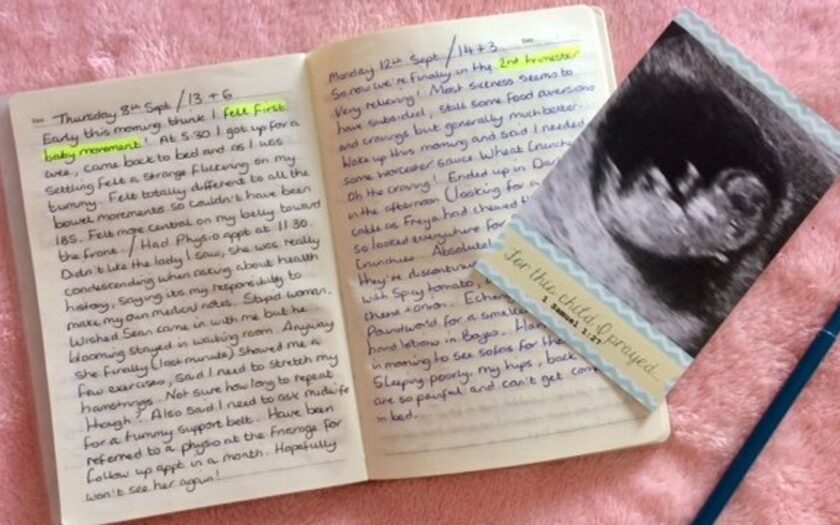 Date Thursday 8th Sept / 13 + 6
Early this morning think I felt first
baby movement! At 5:30 I got up for a
wee, came back to bed and as I was
settling felt a strange fluttering on my
tummy. Felt totally different to all the
bowel movements so couldn't have been
IBS. Felt more central on my belly toward
the front. / Had Physio appt at 11:30.
Didn't like the lady I saw, she was really
condescending when asking about health
history, saying its my responsibility to
make my own medical notes. Stupid woman.
Wished Sean came in with me but he
blooming stayed in waiting room. Anyway
she finally (last minute) showed me a
few exercises, said I need to stretch my
hamstrings. Not sure how long to repeat
though? Also said I need to ask midwife
for a tummy support belt. Have been
referred to a physio at the Friarage for
follow up appt in a month. Hopefully
won't see her again!
Monday 12th Sept / 14+3 Date
So now we're finally in the 2nd trimester
Very relieving! Most sickness seems to
have subsided, still some food aversions
and cravings but generally much better.
Woke up this morning and said I needed
some worcester sauce Wheat Crunchies
Oh the craving! Ended up in
in the afternoon (looking for a
cable as Freya had chewed
so looked everywhere for
Crunchies. Absolutel
they're discontin
with Spicy tomato,
cheese + onion.
Poundworld for a
hand lotions in
in morning to see sofas for the
Sleeping poorly, my hips, back
are so painful and can't get com
in bed.
for this child I prayed...
1 Samuel 1:27